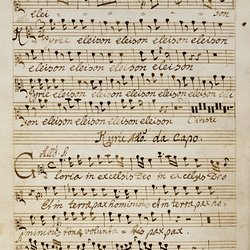 elei son
Kyrie eleison eleison eleison eleison
eleison eleison eleison eleison
Kyrie eleison eleison eleison eleison
son eleison eleison eleison eleison Christe
Kyrie Allo. da Capo.
Gloria in excelsis Deo in excelsis Deo
et in terra pax hominibus et in terra pax ho
minibus bonæ volunta pax pax.